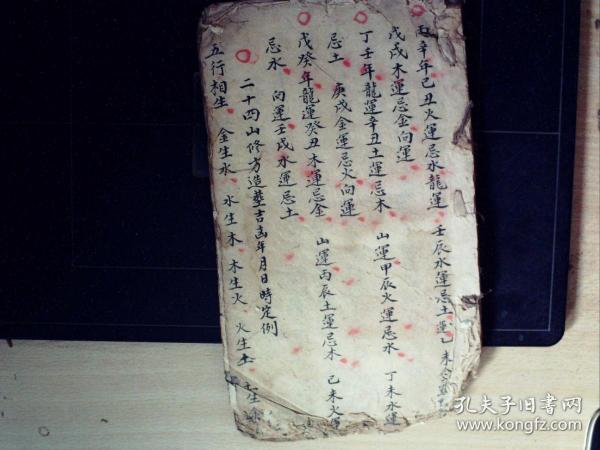 丙辛年己丑火運忌水龍運 壬辰水運忌土運乙未金
戊戌木運忌金向運
丁壬年龍運辛丑土運忌木 山運甲辰火運忌水 丁未水運
忌土 庚戌金運忌火向運
戊癸年龍運癸丑木運忌金 山運丙辰土運忌木 己未火運
忌水 向運壬戌水運忌土
二十四山修方造塟吉凶年月日時定例
五行相生 金生水 水生木 木生火 火生土 土生
孔夫子旧書网
www.kongfz.com